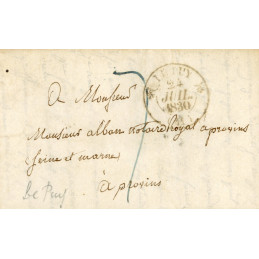 LE PUY
24
JUIL.
1830
7
A Monsieur
Monsieur alban notaire Royal a provins
(seine et marne)
à provins
Le Puy